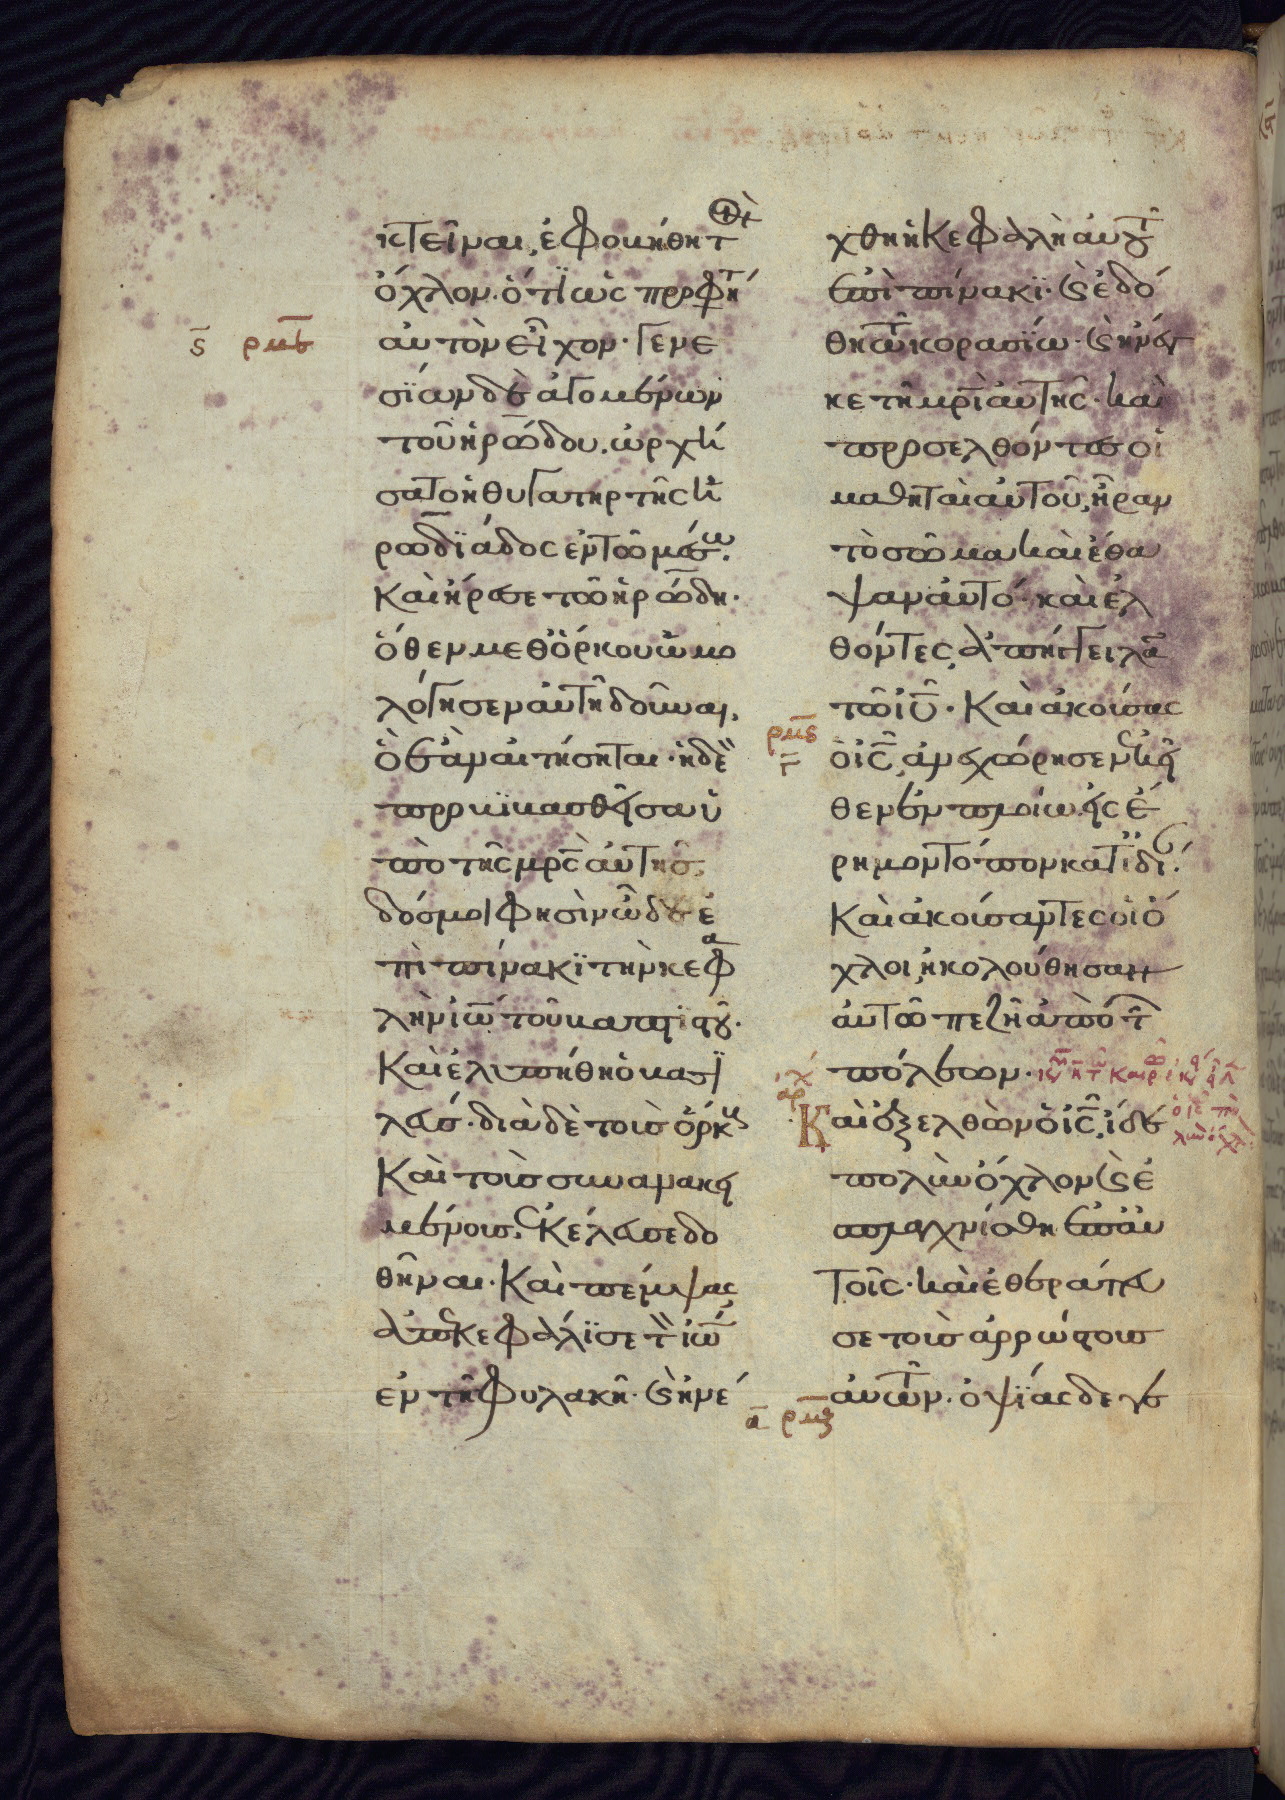 κτεῖναι, ἐφοβήθη τ
ὄχλον· ὅτϊ ὡς προφή
αὐτὸν εἶχον· Γενε
σΐων δὲ ἀγομένων
τοῦ ἡρώδου, ὠρχή
σατο ἡ θυγατηρ τῆς ἡ
ρωδϊάδος ἐν τῶ μέσω.
Καὶ ἤρεσε τῶ ἡρώδη·
ὅθεν μεθ ὅρκου ὡμο
λόγησεν αὐτῆ δοῦναι,
ὃ ἐὰν αἰτήσηται· ἡ δὲ
προβϊβασθεῖσα ὑ
πὸ τῆς μρς αὐτῆς,
δός μοι φησὶν ὧδε ἐ
πὶ πίνακϊ τὴν κεφα
λὴν ἰω τοῦ βαπτιστοῦ·
Καὶ ἐλυπήθη ὁ βασϊ
λεύς· διὰ δὲ τοὺς ὅρκους
Καὶ τοὺς συνανακει
μένους, ἐκέλευσε δο
θῆναι· Καὶ πέμψας
ἀπεκεφάλϊσε τ ἰω
ἐν τῆ φυλακῆ· καὶ ἠνέ
χθη ἡ κεφαλὴ αὐτοῦ
ἐπὶ πίνακϊ· καὶ ἐδό
θη τῶ κορασΐω· καὶ ἤνεγ
κε τῆ μρὶ αὐτῆς· καὶ
προσελθόντες οἱ
μαθηταὶ αὐτοῦ, ἦραν
τὸ σῶμα καὶ ἔθα
ψαν αὐτό· καὶ ἐλ
θόντες, ἀπήγγειλα
τῶ ιυ· Καὶ ἀκούσας
ρμϛ
γ
ὁ ις, ἀνεχώρησεν ἐκεῖ
θεν ἐν πλοίω εἰς ἔ
ρημον τόπον κατ ϊδί·
Καὶ ἀκούσαντες οἱ ὄ
χλοι, ἠκολούθησαν
αὐτῶ πεζῆ ἀπὸ τ
πόλεων·
Καὶ ἐξελθὼν ὁ ις, ἶδε
πολὺν ὄχλον καὶ ἐ
σπλαγχνίσθη ἐπ αὐ
τοῖς· καὶ ἐθεράπευ
σε τοὺς ἀρρώστους
αὐτῶν· ὀψΐας δὲ γε
α ρμζ